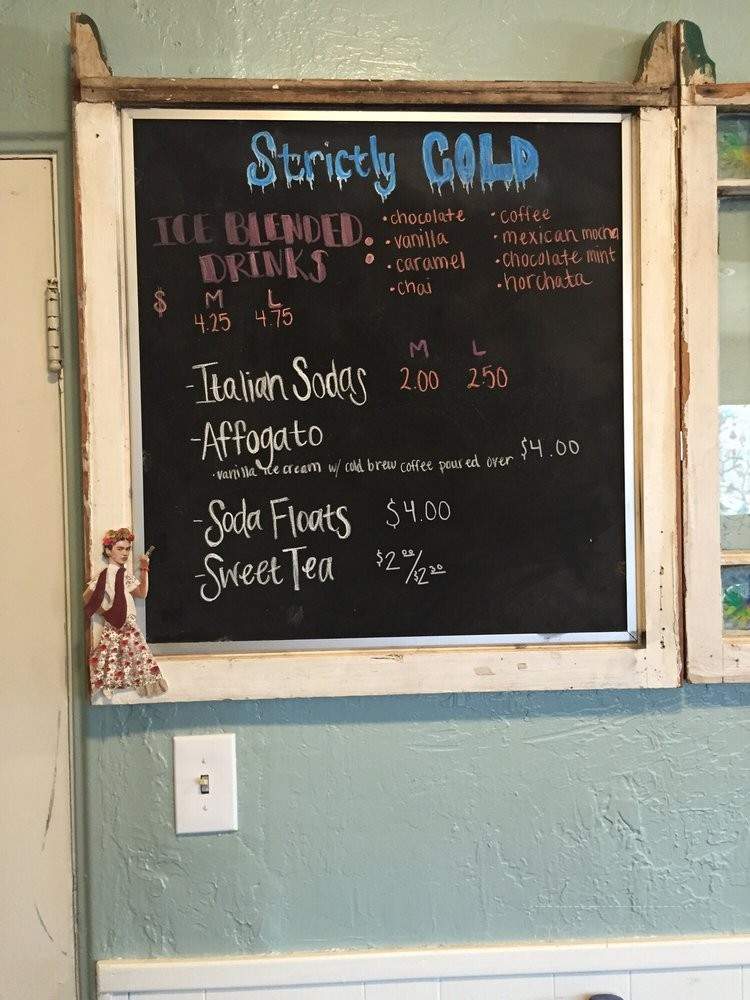 Strictly COLD
ICE BLENDED DRINKS:
• chocolate
• vanilla
• caramel
• chai
• coffee
• mexican mocha
• chocolate mint
• horchata
$ M L
4.25 4.75
M L
- Italian Sodas 2.00 2.50
- Affogato
• vanilla ice cream w/ cold brew coffee poured over $4.00
- Soda Floats $4.00
- Sweet Tea $2.00/$2.20